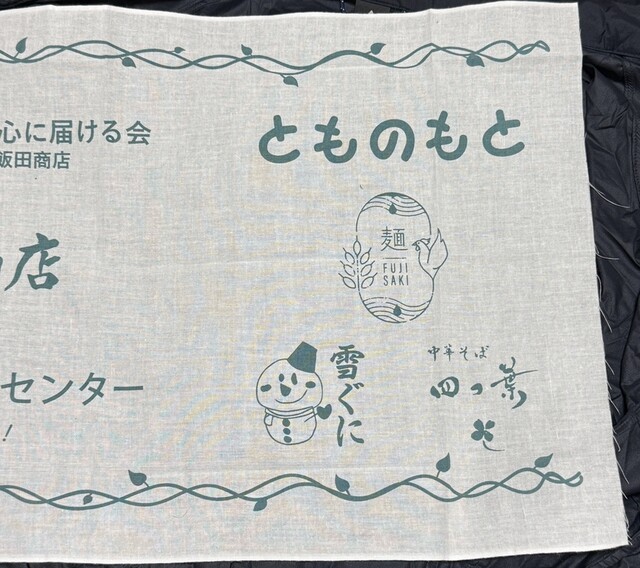 心に届ける会
飯田商店
とものもと
麺
FUJI
SAKI
店
センター
！
雪ぐに
中華そば
四つ葉